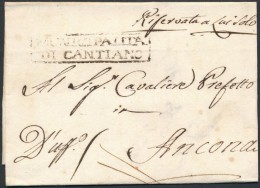 Riservata a Lui Solo
MUNICIPALITA
DI CANTIANO
Al Sig.r Cavaliere Prefetto
in
D'uff.o Ancona